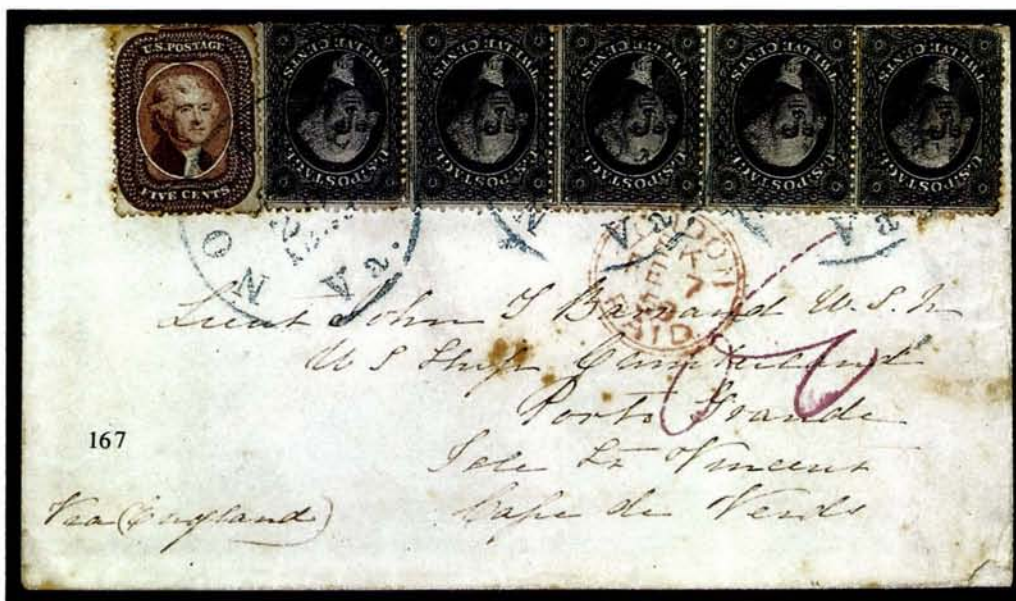 U.S. POSTAGE
FIVE CENTS
TWELVE CENTS
U.S. POSTAGE
TWELVE CENTS
U.S. POSTAGE
TWELVE CENTS
U.S. POSTAGE
TWELVE CENTS
U.S. POSTAGE
TWELVE CENTS
U.S. POSTAGE
NO
Va.
Va
Va
LONDON
7
PAID
Lieut John T Barraud U.S.N
U S Ship Cumberland
Porto Grande
Isle St Vincent
Cape de Verds
167
Via (England)